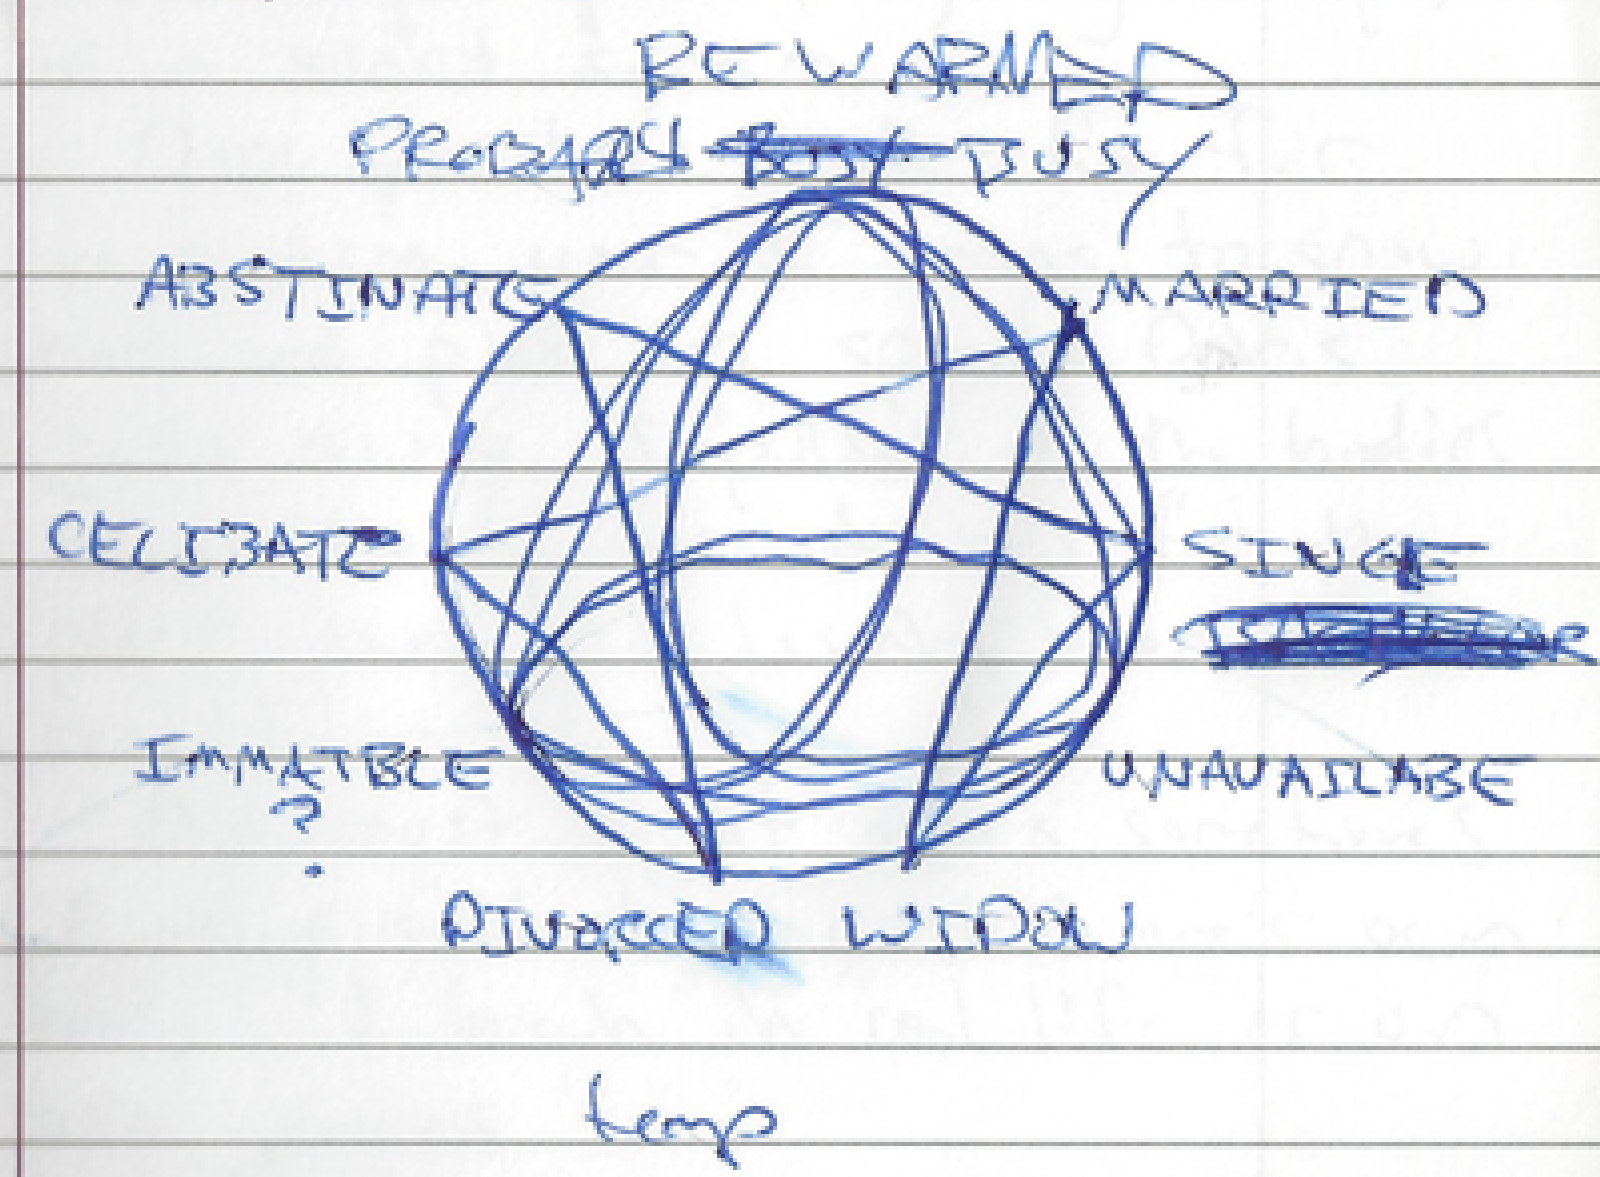 BEWARNED
PROBABLY BUSY BUSY
ABSTINATE MARRIED
CELIBATE SINGE
IMMATBLE UNAVAILABE
?
DIVORCED WIDOW
temp